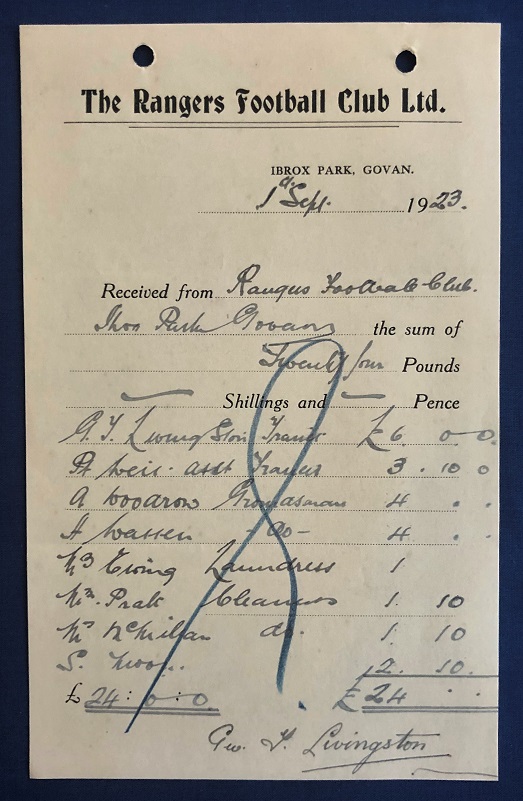 The Rangers Football Club Ltd.
IBROX PARK, GOVAN.
1st Sept. 1923.
Received from Rangers Football Club.
Ibrox Park Govan the sum of
Twenty four Pounds
— Shillings and — Pence
G. T. Livingston Trainer £6 0 0
Weir. asst Trainer 3. 10 0
A Woodrow Groundsman 4 . .
- do - 4 . .
Mrs Ewing Laundress 1
Mrs. Pratt Cleaners 1. 10
Mrs McMillan do. 1 10
S. 2. 10.
£ 24: 0: 0 £ 24 . .
Geo. T. Livingston